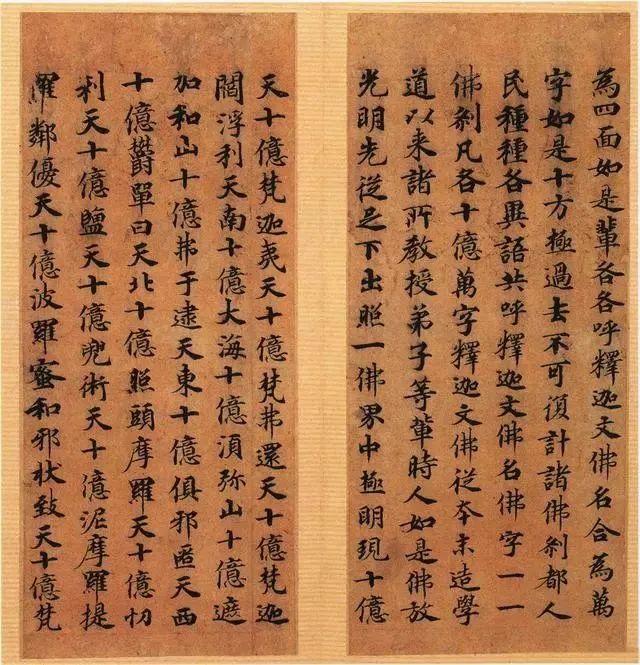 為四面如是輩各各呼釋迦文佛名合為萬
字如是十方極過去不可復計諸佛剎都人
民種種各異語共呼釋迦文佛名佛字一一
佛剎凡各十億萬字釋迦文佛從夲未造學
道以来諸所教授弟子等輩時人如是佛放
光明光從足下出照一佛界中極明現十億
天十億梵迦夷天十億梵弗還天十億梵迦
閻浮利天南十億大海十億湏弥山十億遮
加和山十億弗于逮天東十億俱邪匿天西
十億欝單曰天北十億照頭摩羅天十億忉
利天十億鹽天十億兜術天十億泥摩羅提
羅鄰優天十億波羅蜜和邪拔致天十億梵